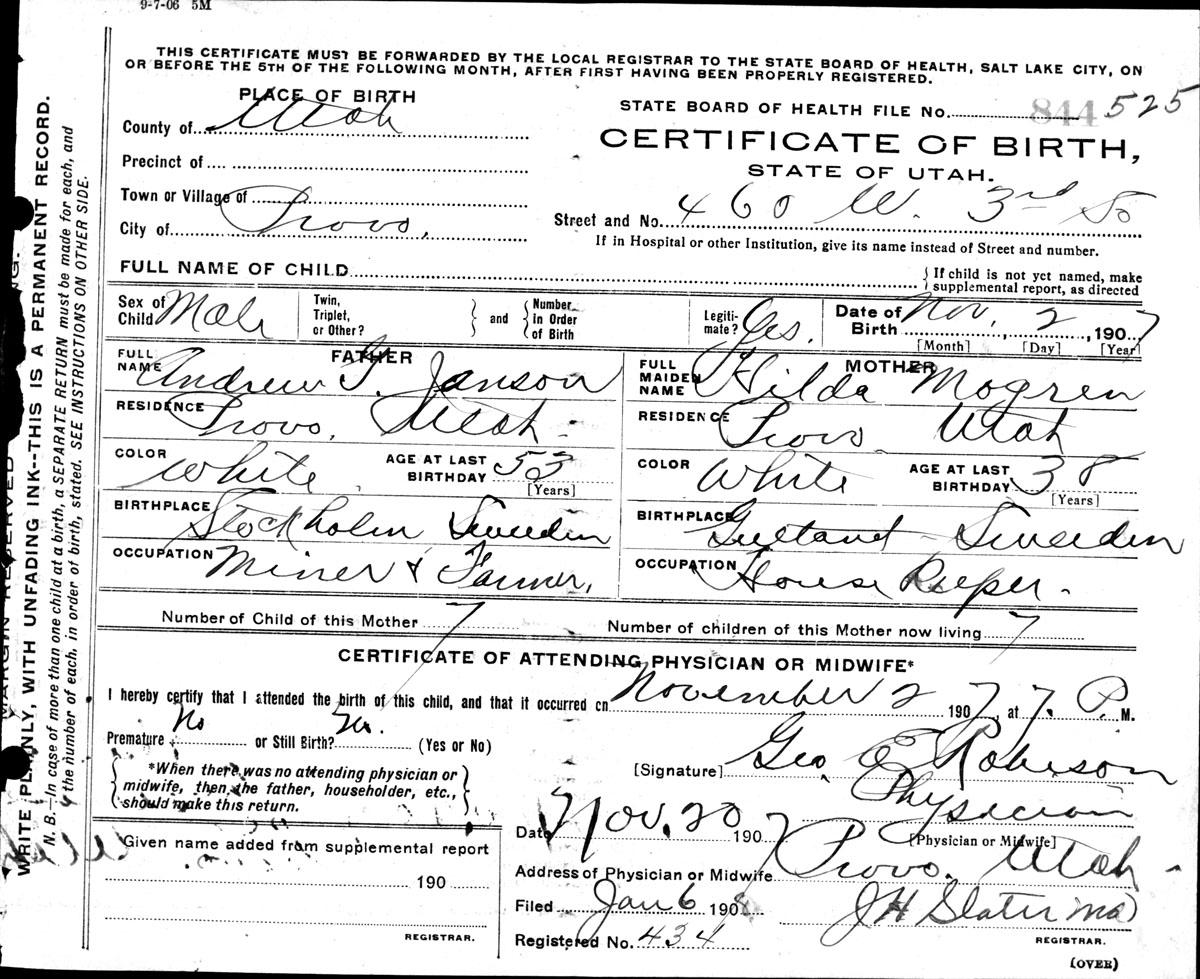 9-7-06 5M
THIS CERTIFICATE MUST BE FORWARDED BY THE LOCAL REGISTRAR TO THE STATE BOARD OF HEALTH, SALT LAKE CITY, ON
OR BEFORE THE 5TH OF THE FOLLOWING MONTH, AFTER FIRST HAVING BEEN PROPERLY REGISTERED.
PLACE OF BIRTH
STATE BOARD OF HEALTH FILE No. 844 525
County of Utah
CERTIFICATE OF BIRTH,
Precinct of
STATE OF UTAH.
Town or Village of
Street and No. 460 W. 3rd So
City of Provo,
If in Hospital or other Institution, give its name instead of Street and number.
FULL NAME OF CHILD
{ If child is not yet named, make supplemental report, as directed
Sex of Child Male Twin, Triplet, or Other? } and { Number in Order of Birth Legiti-mate? Yes. Date of Birth Nov. 2, 1907
[Month] [Day] [Year]
FATHER
FULL NAME Andrew G. Janson
RESIDENCE Provo, Utah -
COLOR White. AGE AT LAST BIRTHDAY 53 [Years]
BIRTHPLACE Stockholm Sweeden
OCCUPATION Miner & Farmer,
MOTHER
FULL MAIDEN NAME Hilda Mogren
RESIDENCE Provo Utah
COLOR White AGE AT LAST BIRTHDAY 38 [Years]
BIRTHPLACE Sweeden
OCCUPATION House Keeper.
Number of Child of this Mother 7 Number of children of this Mother now living 7
CERTIFICATE OF ATTENDING PHYSICIAN OR MIDWIFE*
I hereby certify that I attended the birth of this child, and that it occurred on November 2 1907, at 7. P. M.
Premature No or Still Birth? No. (Yes or No)
[Signature] Geo E Robison
*When there was no attending physician or
midwife, then the father, householder, etc.,
should make this return.
Physician
[Physician or Midwife]
Date Nov. 20 1907
Given name added from supplemental report
Address of Physician or Midwife Provo. Utah -
190
Filed Jan 6 1908 J H Slater MD
REGISTRAR.
Registered No. 434
REGISTRAR.
(OVER)
MARGIN RESERVED
WRITE PLAINLY, WITH UNFADING INK--THIS IS A PERMANENT RECORD.
N. B.--In case of more than one child at a birth, a SEPARATE RETURN must be made for each, and
the number of each, in order of birth, stated. SEE INSTRUCTIONS ON OTHER SIDE.